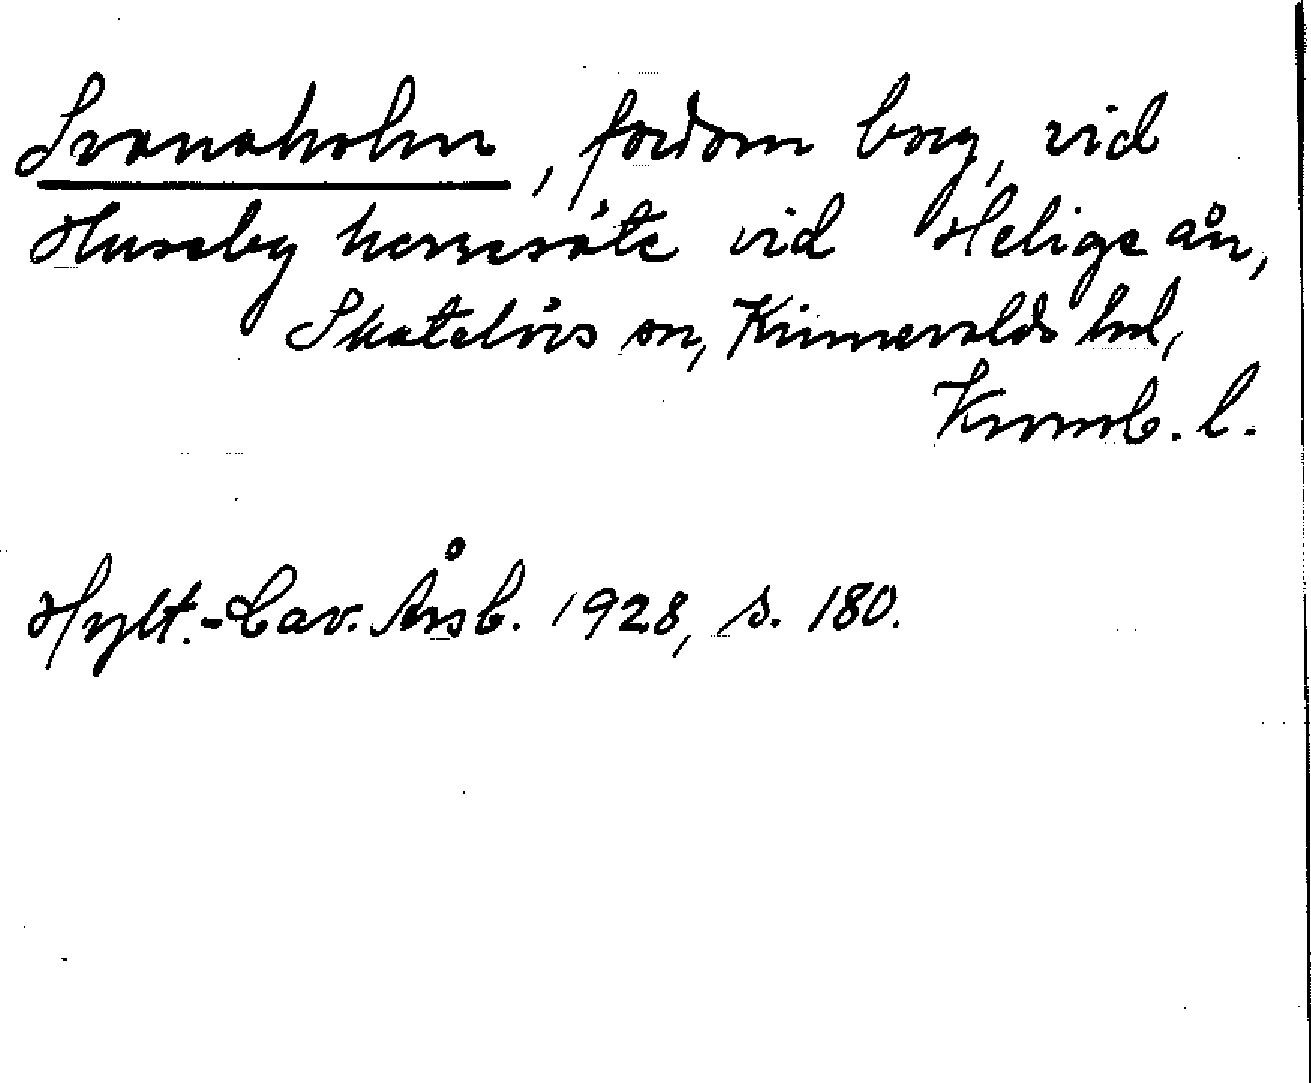 Svanaholm, fordom borg, vid
Huseby herresäte vid Helige ån,
Skatelövs sn, Kinnevalds hd,
Kronob. l.
Hylt.-Cav. Årsb. 1928, s. 180.